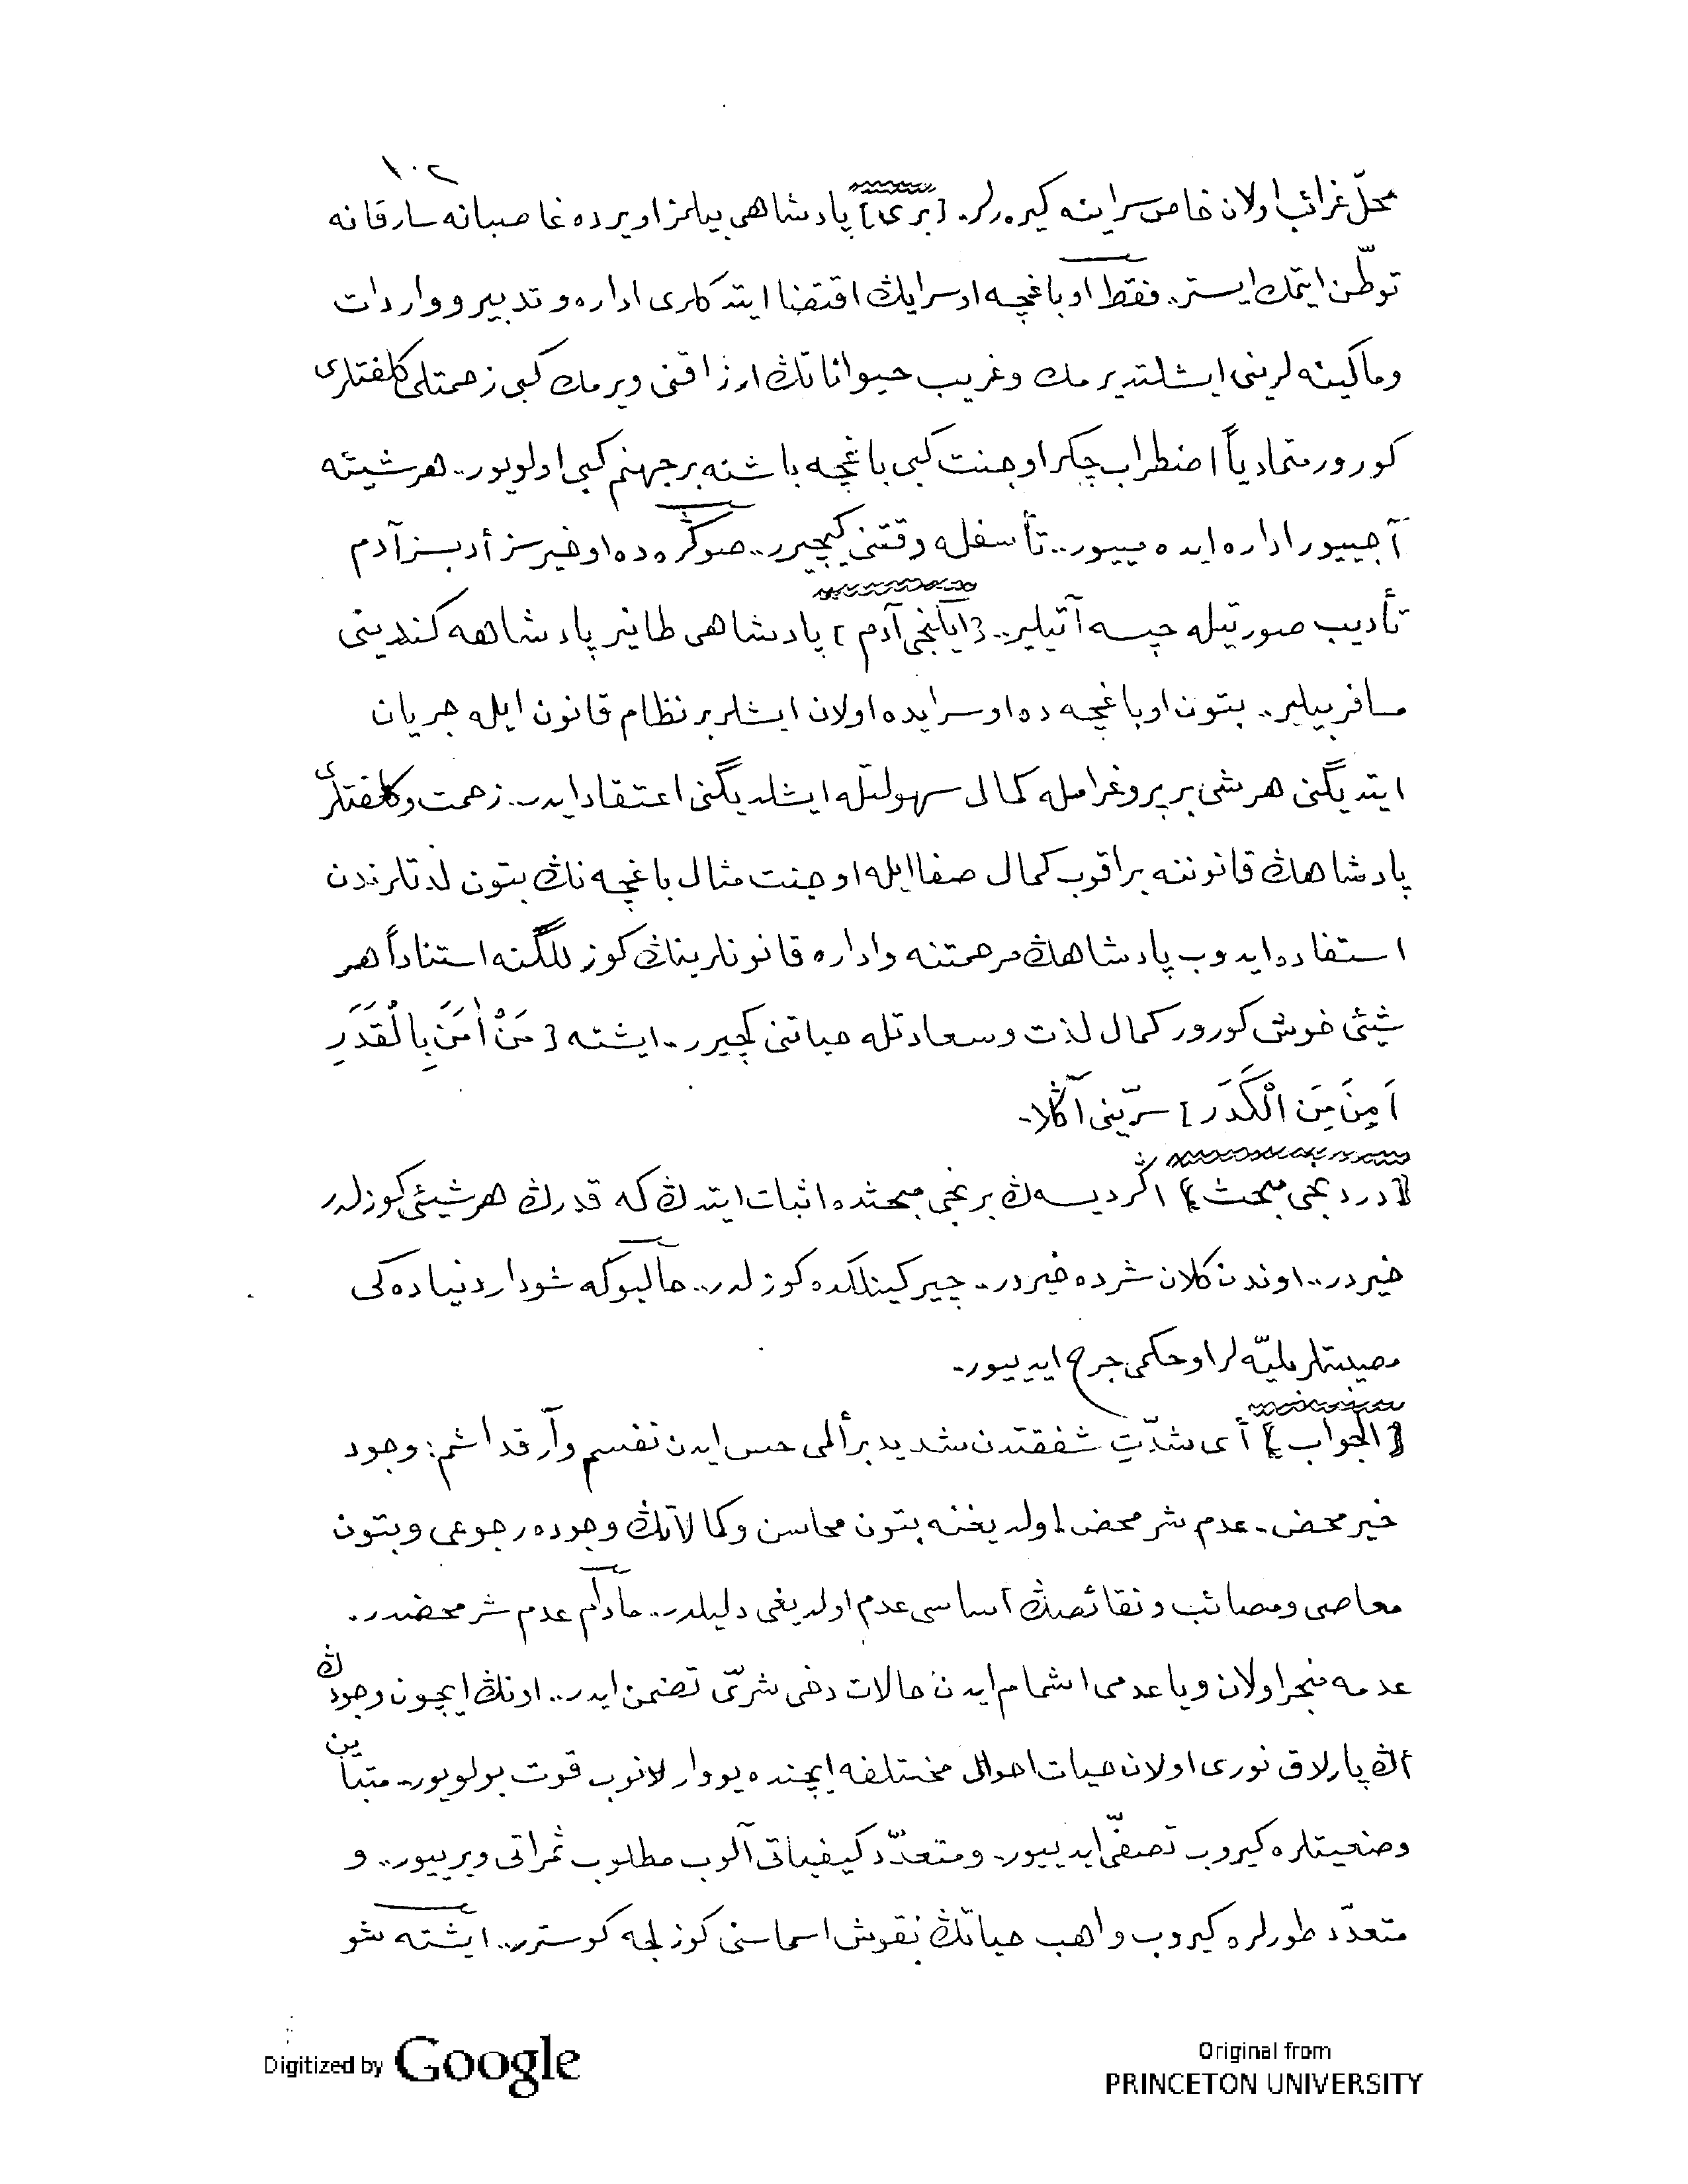 ١٠٢
محلّ غرائب اولان خاص سراينه كيره‌رلر. [برى] پادشاهى بيلمز او يرده غاصبانه سارقانه
توطّن ايتمك ايستر.. فقط او باغچه او سرايڭ اقتضا ايتدكلرى اداره و تدبير و واردات
و ماكينه لرينى ايشلتديرمك و غريب حيواناتڭ ارزاقنى ويرمك كبى زحمتلى كلفتلرى
كورور متمادياً اضطراب چكر او جنت كبى باغچه باشنه بر جهنم كبى اولويور.. هر شيئه
آجييور اداره ايده مييور.. تأسفله وقتنى كيچيرر.. صوڭره ده او خيرسز أدبسز آدم
تأديب صورتيله حپسه آتيلير.. [ايكنجى آدم] پادشاهى طانير پادشاهه كندينى
مسافر بيلير.. بتون او باغچه ده او سرايده اولان ايشلر بر نظام قانون ايله جريان
ايتديگنى هر شى بر پروغرامله كمال سهولتله ايشلديگنى اعتقاد ايدر.. زحمت و كلفتلرى
پادشاهڭ قانوننه براقوب كمال صفا ايله او جنت مثال باغچه نڭ بتون لذتلرندن
استفاده ايدوب پادشاهڭ مرحمتنه و اداره قانونلرينڭ كوزللگنه استناداً هر
شيئى خوش كورور كمال لذت و سعادتله حياتنى كچيرر.. ايشته [مَنْ اٰمَنَ بِالْقَدَرِ
اَمِنَ مِنَ الْكَدَرِ] سرّينى آڭلا.
[دردنجى مبحث] اگر ديسه‌ڭ برنجى مبحثده اثبات ايتدڭ كه قدرڭ هر شيئى كوزلدر
خيردر.. اوندن كلان شر ده خيردر.. چيركينلكده كوزلدر.. حالبوكه شو دار دنياده كى
مصيبتلر بليّه لر او حكمى جرح ايدييور.
[الجواب] أى شدّتِ شفقتدن شديد بر ألمى حس ايدن نفسم و آرقداشم: وجود
خير محض. عدم شر محض اولديغنه بتون محاسن و كمالاتڭ وجوده رجوعى و بتون
معاصى و مصائب و نقائصڭ أساسى عدم اولديغى دليلدر.. مادام عدم شر محضدر.
عدمه منجر اولان ويا عدمى اشمام ايدن حالات دخى شرّى تضمن ايدر.. اونڭ ايچون وجودڭ
أڭ پارلاق نورى اولان حيات احوال مختلفه ايچنده يووارلانوب قوت بولويور. متباين
وضعيتلره كيروب تصفّى ايدييور. و متعدّد كيفياتى آلوب مطلوب ثمراتى ويرييور.. و
متعدّد طورلره كيروب واهب حياتڭ نقوش اسماسنى كوزلجه كوسترر.. ايشته شو
Digitized by Google
Original from
PRINCETON UNIVERSITY